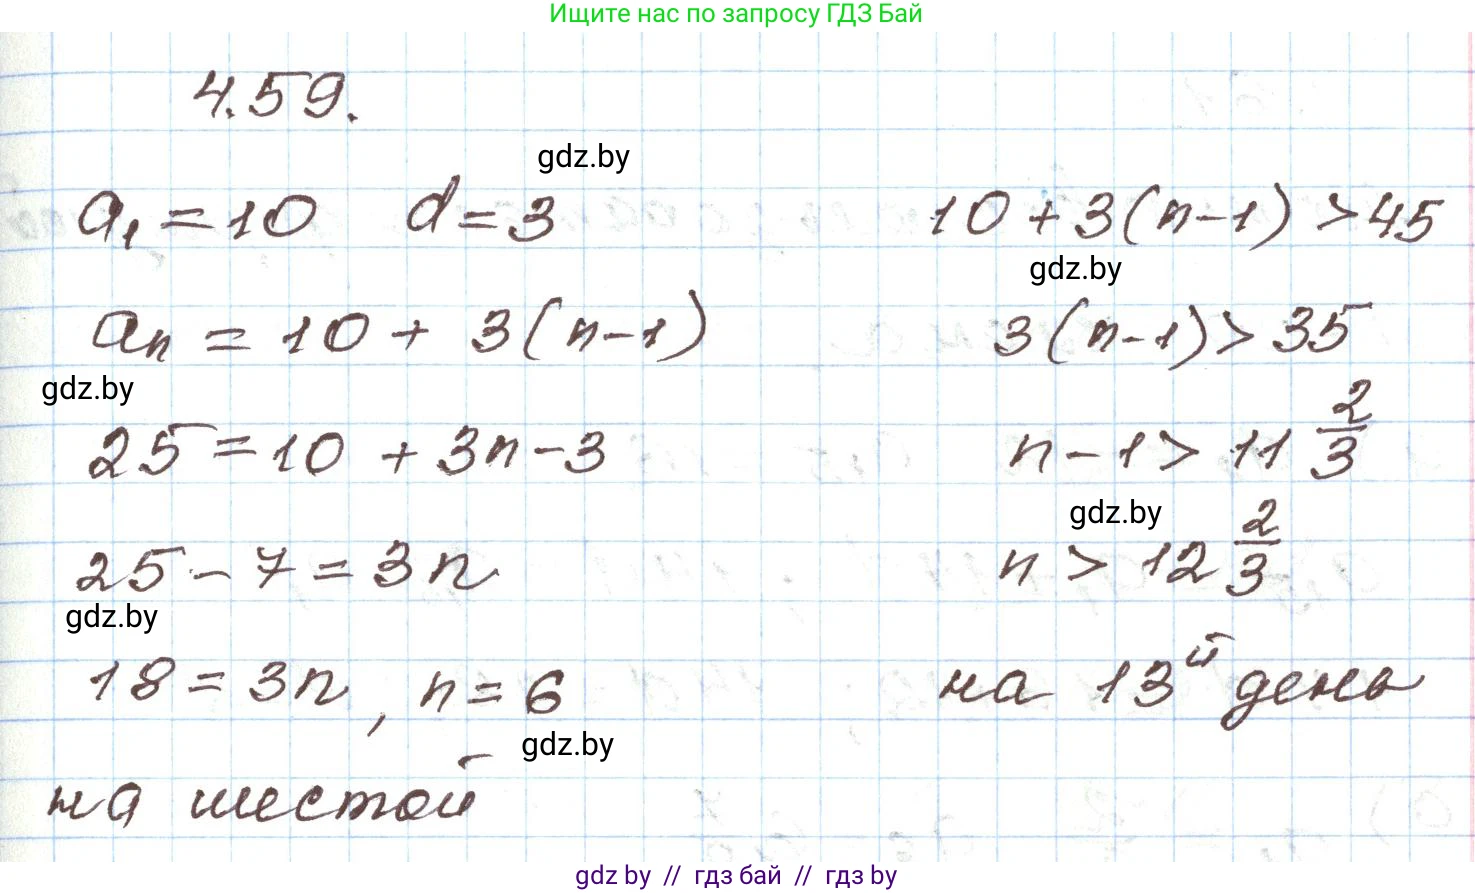 Ищите нас по запросу ГДЗ Бай
4.59.
gdz.by
a₁ = 10 d = 3
10 + 3(n-1) > 45
gdz.by
aₙ = 10 + 3(n-1)
3(n-1) > 35
gdz.by
25 = 10 + 3n - 3
n - 1 > 11 2/3
gdz.by
25 - 7 = 3n
n > 12 2/3
gdz.by
18 = 3n, n = 6
на 13й день
gdz.by
на шестой
gdz by // гдз бай // гдз by